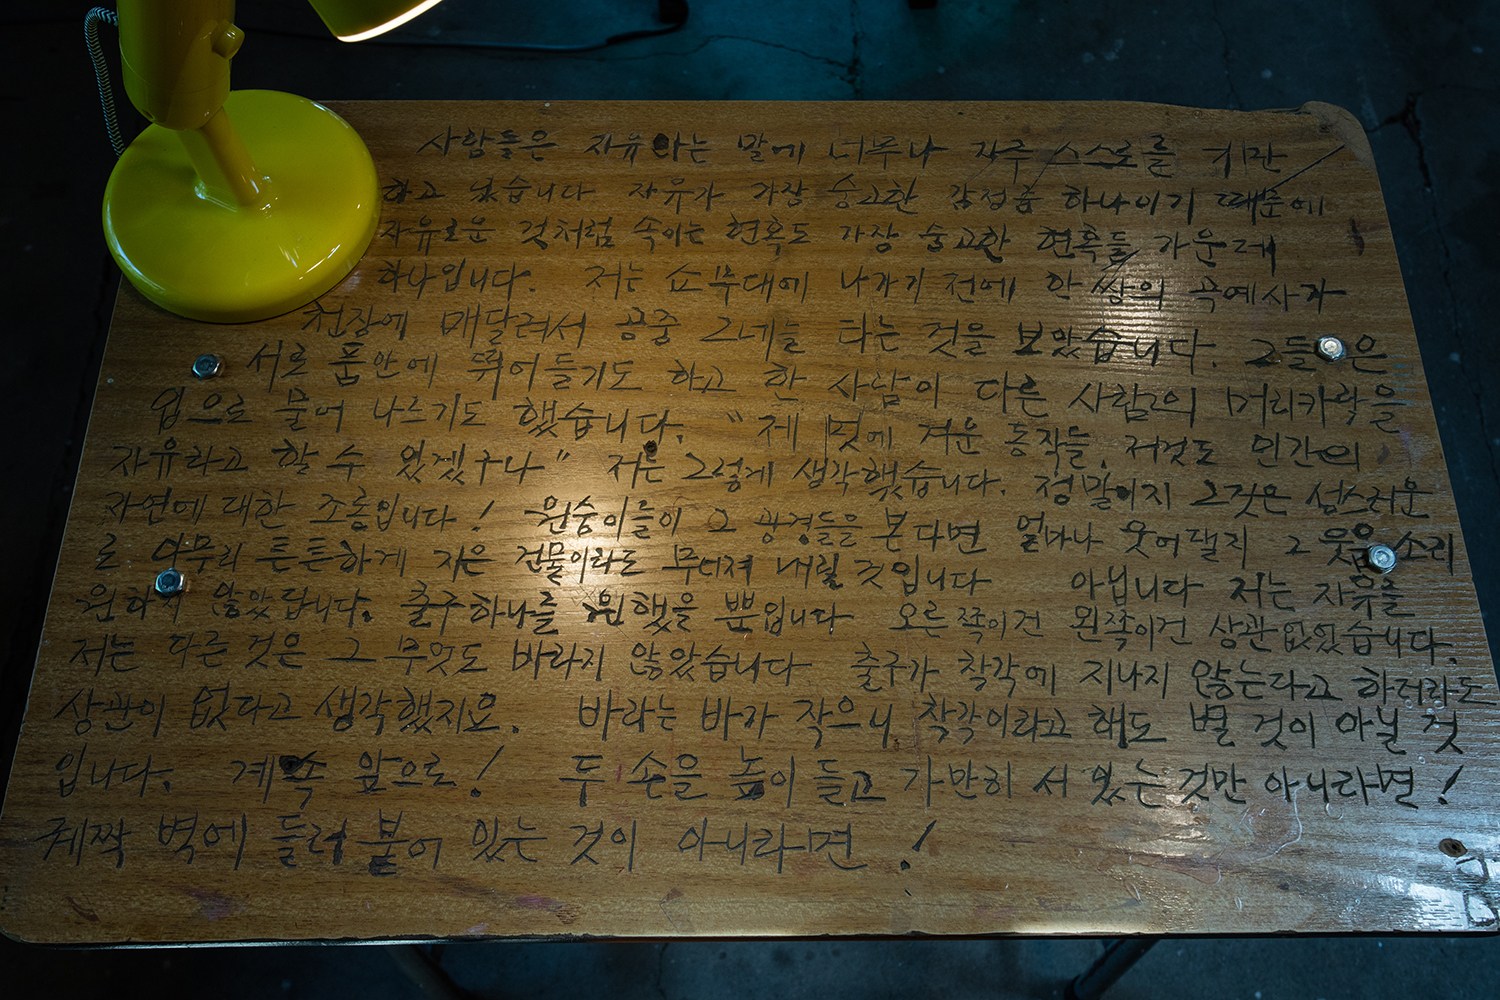 사람들은 자유라는 말에 너무나 자주 스스로를 기만
하고 있습니다 자유가 가장 숭고한 감정중 하나이기 때문에
자유로운 것처럼 속이는 현혹도 가장 숭고한 현혹들 가운데
하나입니다. 저는 쇼무대에 나가기 전에 한 쌍의 곡예사가
천장에 매달려서 공중 그네를 타는 것을 보았습니다. 그들은
서로 품안에 뛰어들기도 하고 한 사람이 다른 사람의 머리카락을
입으로 물어 나르기도 했습니다. “제 멋에 겨운 동작들, 저것도 인간의
자유라고 할 수 있겠구나” 저는 그렇게 생각했습니다. 정말이지 그것은 성스러운
자연에 대한 조롱입니다! 원숭이들이 그 광경들을 본다면 얼마나 웃어댈지 그 웃음소리
로 아무리 튼튼하게 지은 건물이라도 무너져 내릴 것입니다 아닙니다 저는 자유를
원하지 않았답니다. 출구하나를 원했을 뿐입니다 오른쪽이건 왼쪽이건 상관없었습니다.
저는 다른 것은 그 무엇도 바라지 않았습니다 출구가 착각에 지나지 않는다고 하더라도
상관이 없다고 생각했지요. 바라는 바가 작으니, 착각이라고 해도 별 것이 아닐 것
입니다. 계속 앞으로! 두 손을 높이 들고 가만히 서 있는 것만 아니라면!
궤짝 벽에 들러 붙어 있는 것이 아니라면!